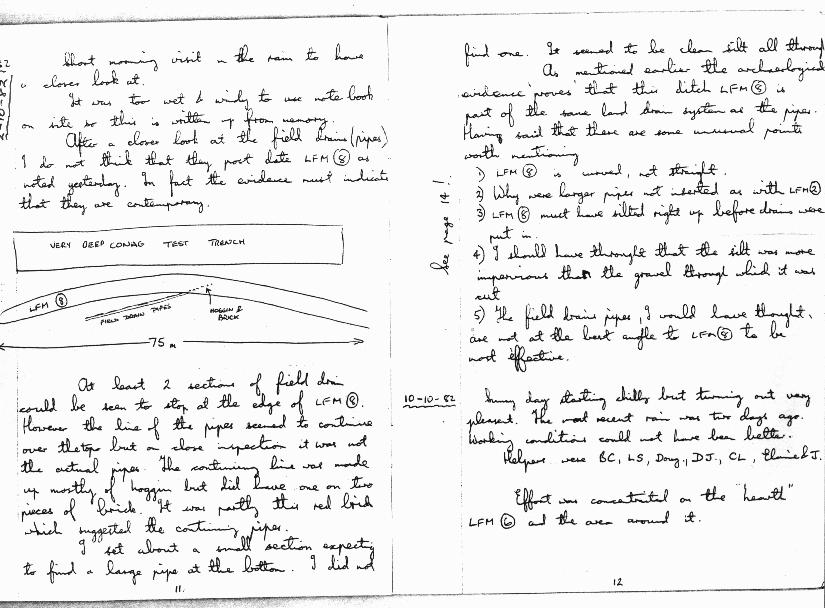 Short morning visit in the rain to have
a closer look at.
It was too wet & windy to use note book
on site so this is written up from memory.
After a closer look at the field drains (pipes)
I do not think that they post date LFM ⑧ as
noted yesterday. In fact the evidence must indicate
that they are contemporary.
VERY DEEP CONAG TEST TRENCH
LFM ⑧
FIELD DRAIN PIPES
HOGGIN &
BRICK
75 m
At least 2 sections of field drain
could be seen to stop at the edge of LFM ⑧.
However the line of the pipes seemed to continue
over the top but on close inspection it was not
the actual pipes. The continuing line was made
up mostly of hoggin but did have one or two
pieces of brick. It was partly this red brick
which suggested the continuing pipes.
I set about a small section expecting
to find a large pipe at the bottom. I did not
11.
find one. It seemed to be clean silt all through
As mentioned earlier the archaeological
evidence 'proves' that this ditch LFM ⑧ is
part of the same land drain system as the pipes.
Having said that there are some unusual points
worth mentioning
1) LFM ⑧ is curved, not straight.
2) Why were larger pipes not inserted as with LFM ②
3) LFM ⑧ must have silted right up before drains were
put in.
see page 14!
4) I should have throught that the silt was more
impervious than the gravel through which it was
cut
5) The field drains pipes, I would have thought,
are not at the best angle to LFM ⑧ to be
most effective.
10-10-82
Sunny day starting chilly but turning out very
pleasant. The most recent rain was two days ago.
Working conditions could not have been better.
Helpers were BC, LS, Doug, DJ, CL, Elaine & J.
Effort was concentrated on the "hearth"
LFM ⑥ and the area around it.
12